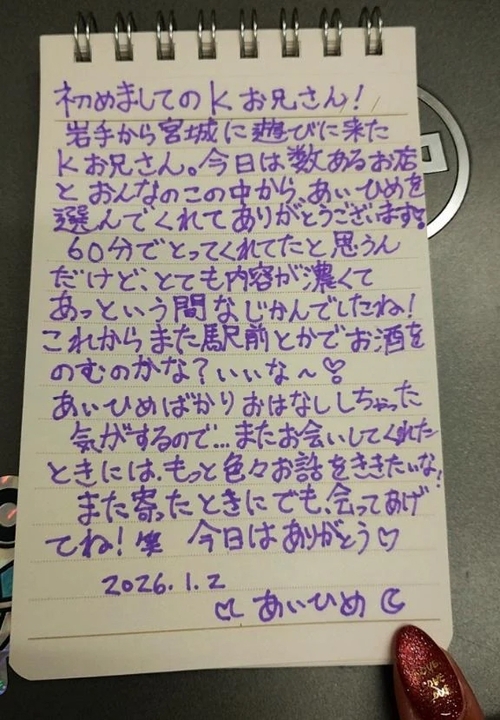 初めましてのKお兄さん!
岩手から宮城に遊びに来た
Kお兄さん。今日は数あるお店
とおんなのこの中から、あいひめを
選んでくれてありがとうございます♡
60分でとってくれてたと思うん
だけど、とても内容が濃くて
あっという間なじかんでしたね!
これからまた駅前とかでお酒を
のむのかな?いぃな~♡
あぃひめばかりおはなししちゃった
気がするので…またお会いしてくれた
ときには、もっと色々お話をききたぃな!
また寄ったときにでも、会ってあげ
てね!笑 今日はありがとう♡
2026.1.2
♡ あぃひめ ☾